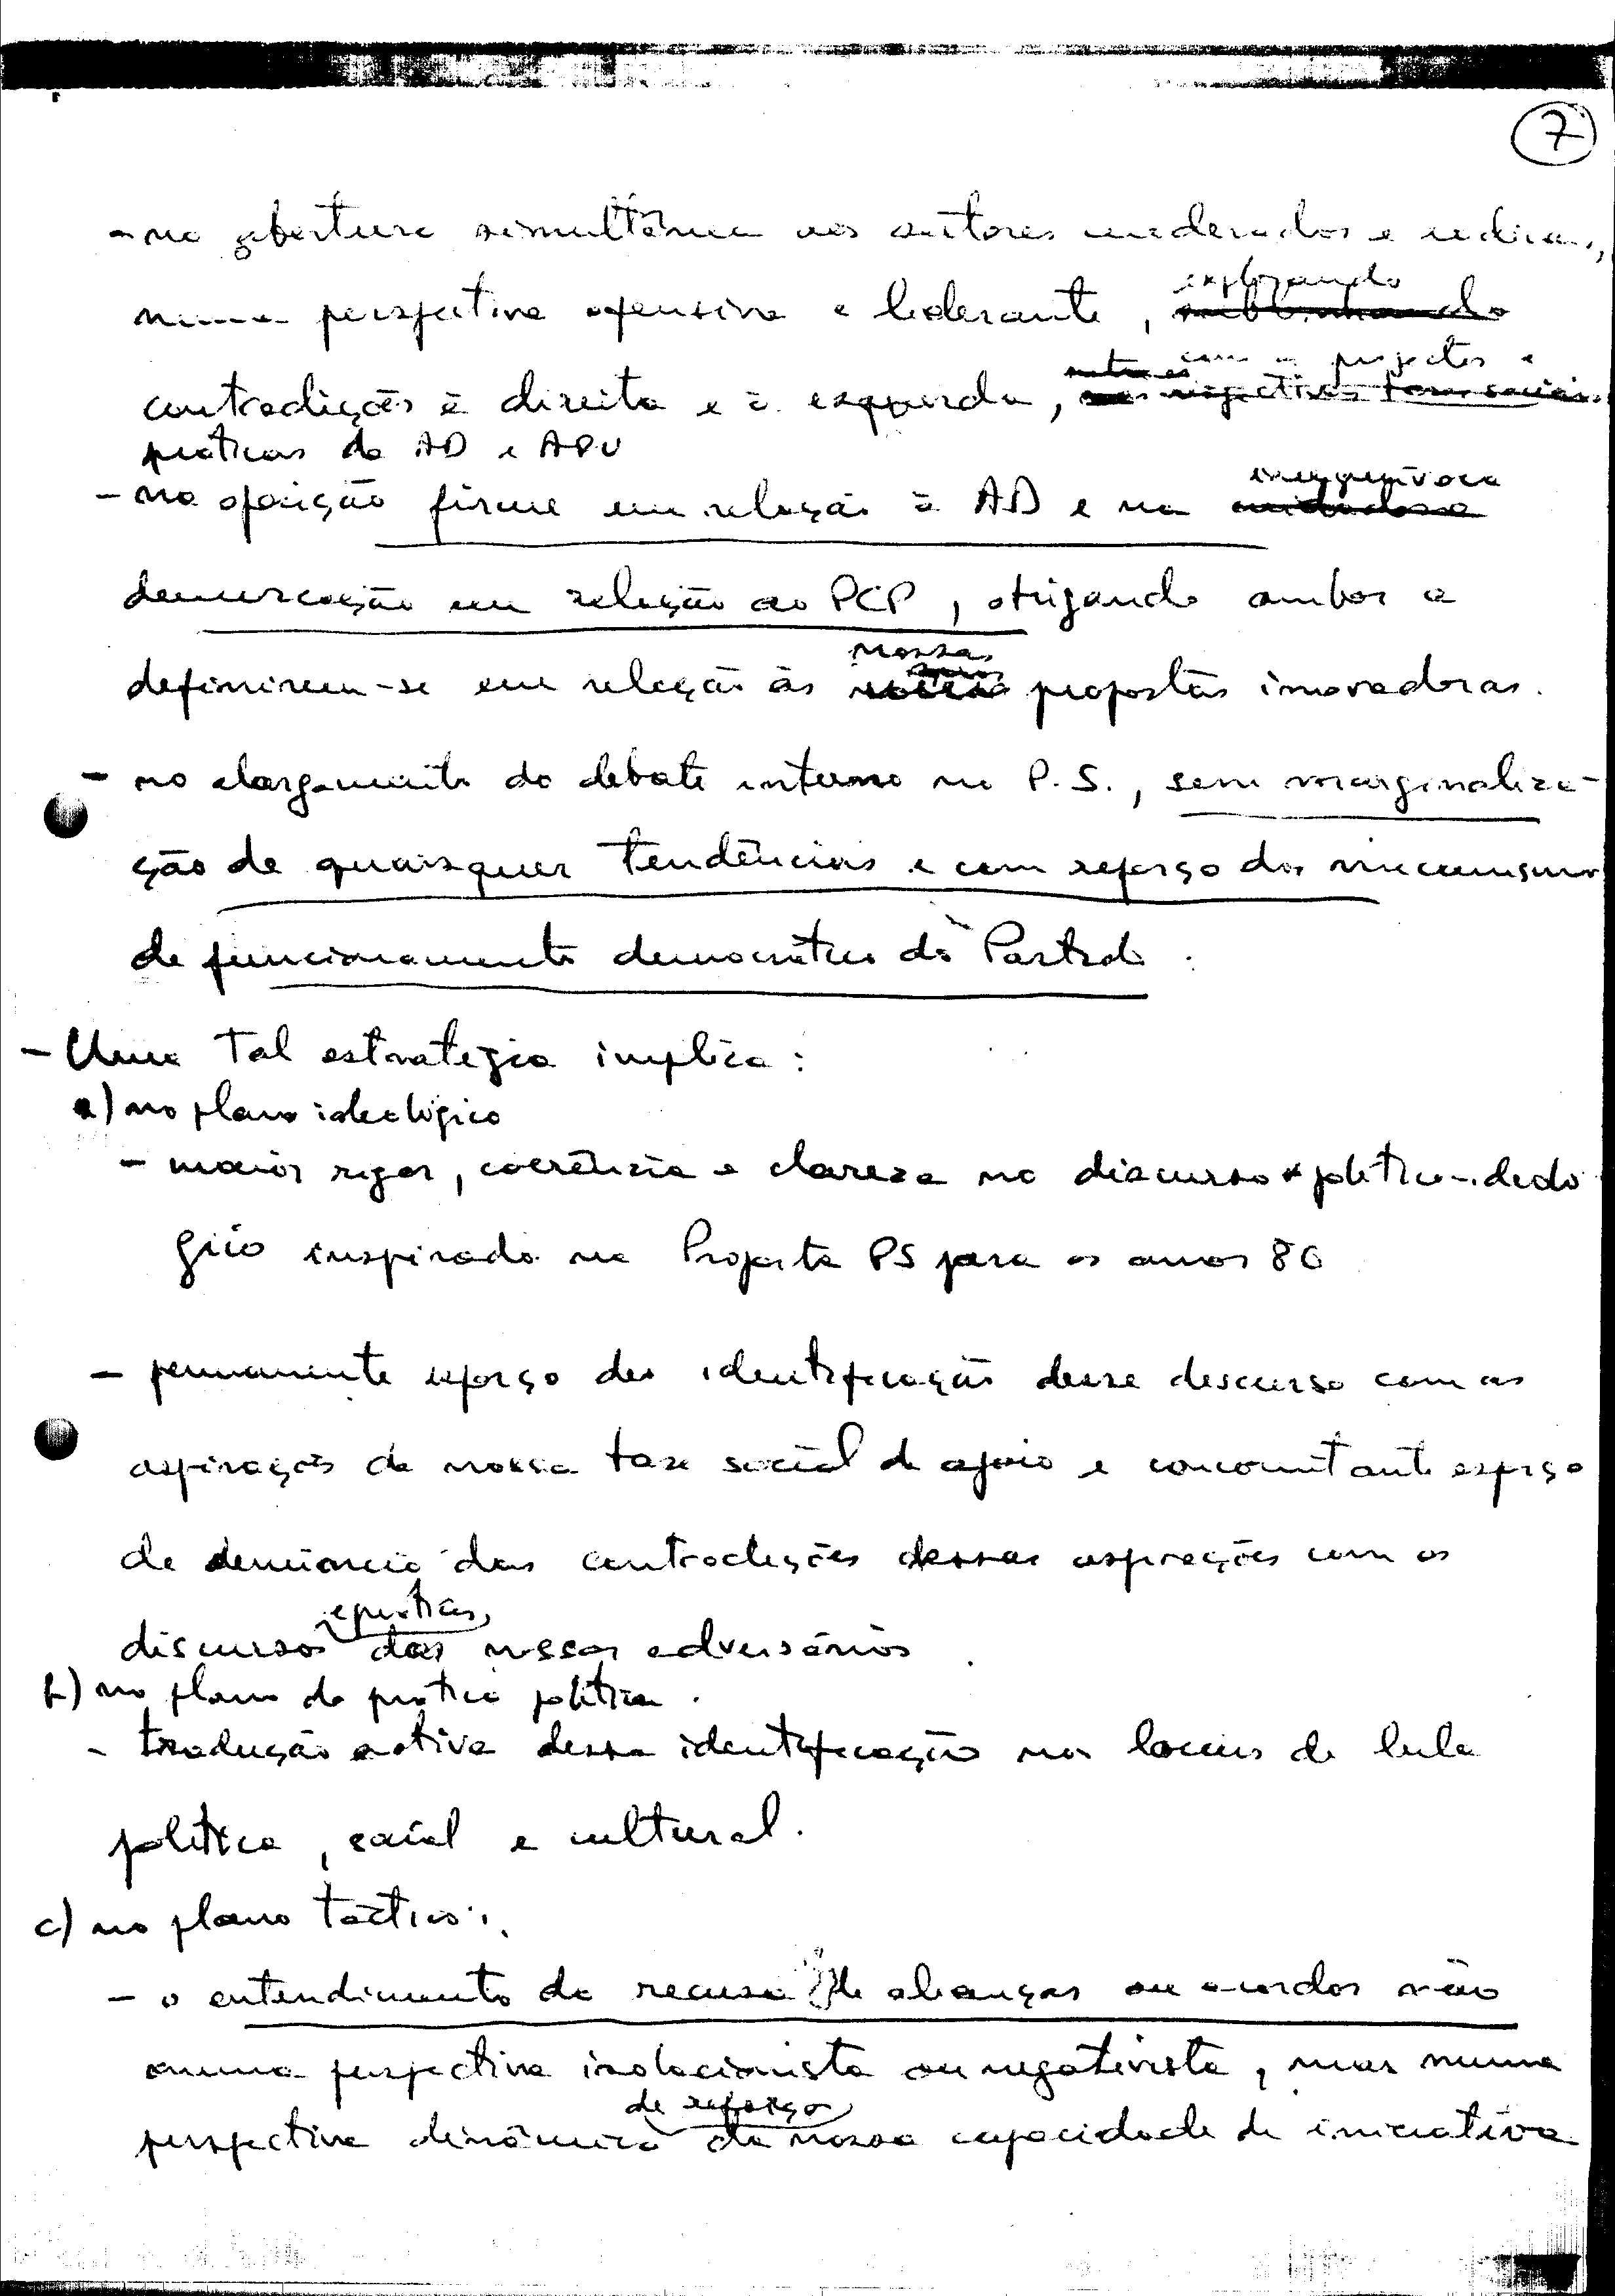 7
- na abertura simultânea aos sectores moderados e radicais,
numa perspectiva ofensiva e liderante, explorando
contradições à direita e à esquerda, com os projectos e
práticas da AD e APU
- na oposição firme em relação à AD e na inequívoca
demarcação em relação ao PCP, obrigando ambos a
definirem-se em relação às nossas propostas inovadoras.
- no alargamento do debate interno no P.S., sem marginaliza-
ção de quaisquer tendências e com reforço dos mecanismos
de funcionamento democrático do Partido.
- Uma tal estratégia implica:
a) no plano ideológico
- maior rigor, coerência e clareza no discurso político-ideoló
gico inspirado na Proposta PS para os anos 80
- permanente esforço de identificação desse discurso com as
aspirações da nossa base social de apoio e concomitante esforço
de denúncia das contradições dessas aspirações com os
discursos e práticas dos nossos adversários.
b) no plano da prática política.
- tradução activa dessa identificação nos locais de luta
política, social e cultural.
c) no plano táctico:
- o entendimento da recusa de alianças ou acordos não
numa perspectiva isolacionista ou negativista, mas numa
perspectiva dinâmica de reforço da nossa capacidade de iniciativa